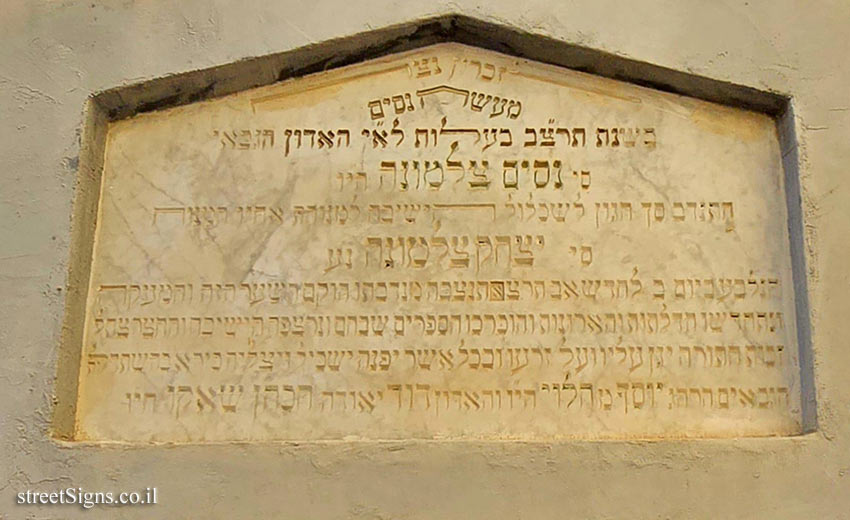 זכרון נצח
מעשה נסים
בשנת תרצ"ב בעלות לא"י האדון הגבאי
סי' נסים צלמונה היו
התנדב סך הגון לשכלול הישיבה למנוחת אחיו
סי' יצחק צלמונה נע
ביום ב לחדש אב מנדבתו הוקם השער הזה והמעקה
הדלתות והארונות הספרים שבהם ונרצפה הישיבה והחצר
זכות התורה יגן עליו ועל זרעו ובכל אשר יפנה ישכיל ויצליח
הגבאים יוסף הלוי היו והאדון דוד יאודה הכהן שאקי היו
streetSigns.co.il